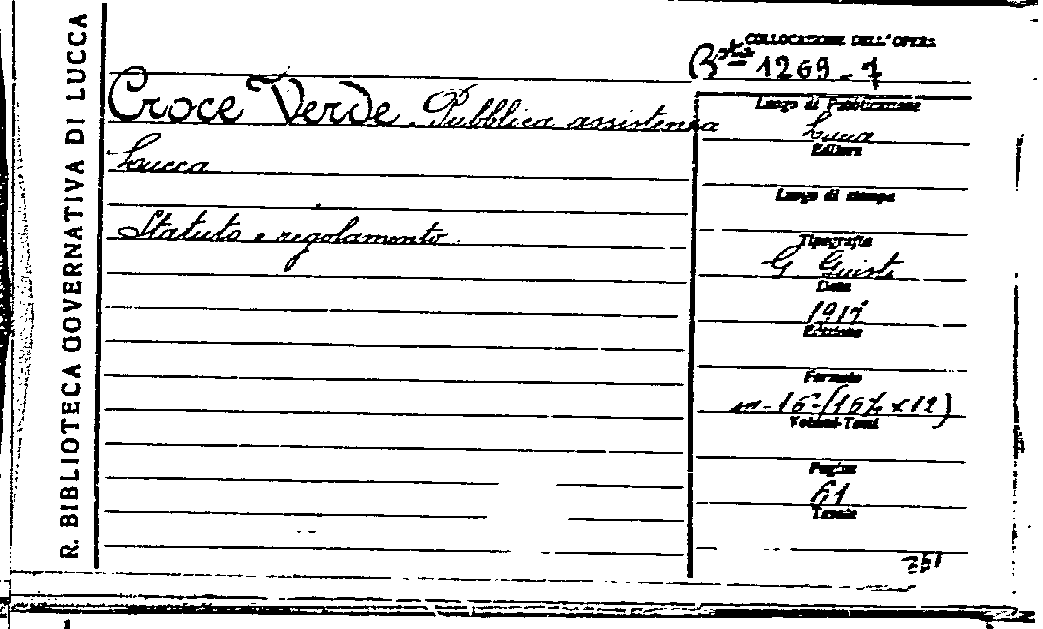 R. BIBLIOTECA GOVERNATIVA DI LUCCA
COLLOCAZIONE DELL'OPERA
Bta 1269-7
Croce Verde. Pubblica assistenza
Lucca
Statuto e regolamento.
Luogo di Pubblicazione
Lucca
Editore
Luogo di stampa
Tipografia
G Giusti
Data
Edizione
Formato
in-16-(16½ x 12)
Volumi-Tomi
Pagine
61
Tavole